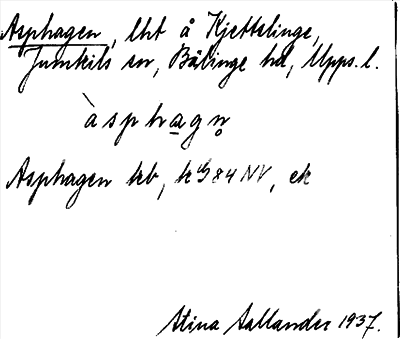 Asphagen, lht å Kjettslinge,
Jumkils sn, Bälinge hd, Upps. l.
àsphagn̥
Asphagen kb, k G 84 NV, ek
Stina Sallander 1937.